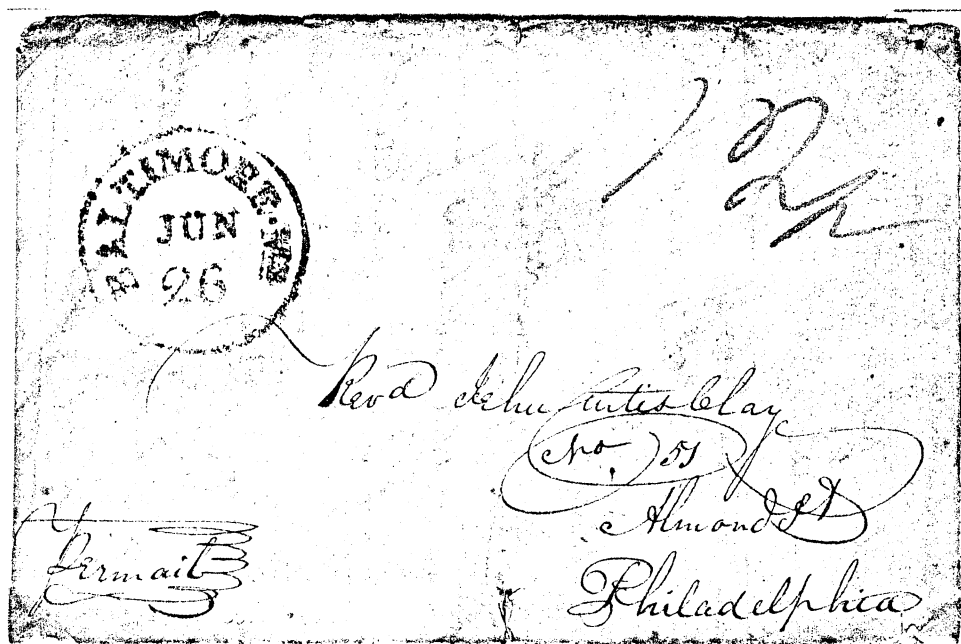 BALTIMORE Md
JUN
26
12½
Revd Jehu Curtis Clay
No. 51
Almond St
Philadelphia
Permail